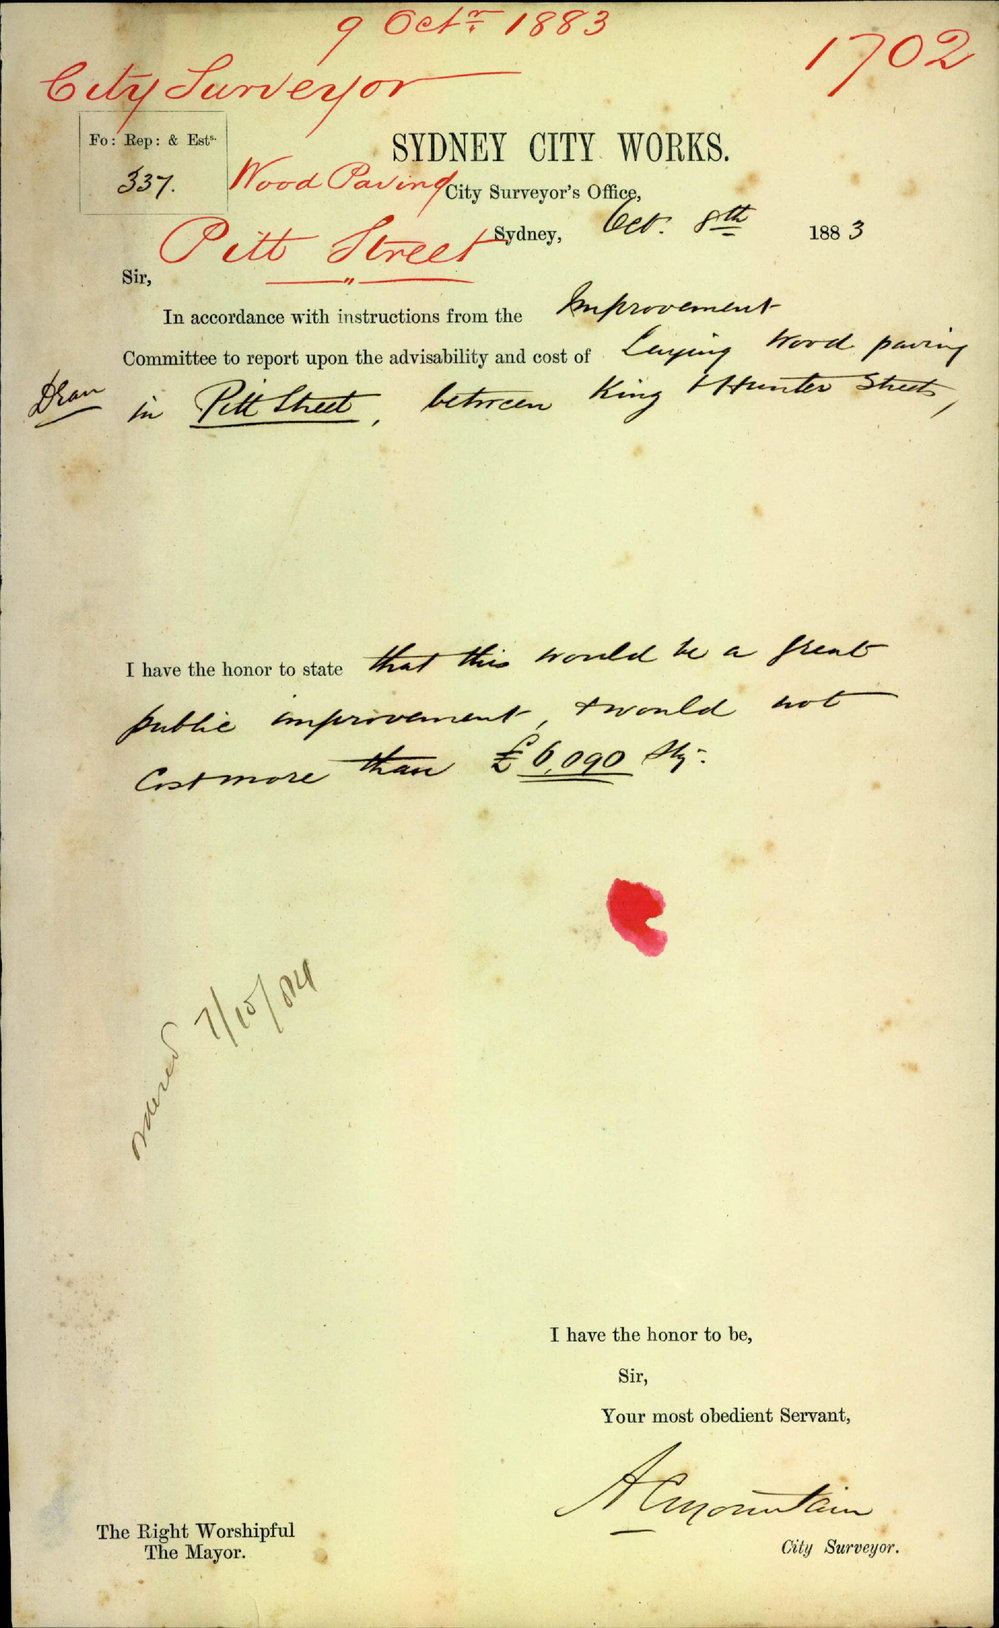 9 Octr. 1883
1702
City Surveyor
Fo: Rep: & Ests.
337.
SYDNEY CITY WORKS.
Wood Paving
City Surveyor's Office,
Pitt Street
Sydney, Oct. 8th 1883
Sir,
In accordance with instructions from the Improvement
Committee to report upon the advisability and cost of Laying wood paving
in Pitt Street, between King & Hunter Streets,
I have the honor to state that this would be a great
public improvement, & would not
Cost more than £6,090 Stg.
ordered 7/10/84
I have the honor to be,
Sir,
Your most obedient Servant,
A C Mountain
City Surveyor.
The Right Worshipful
The Mayor.